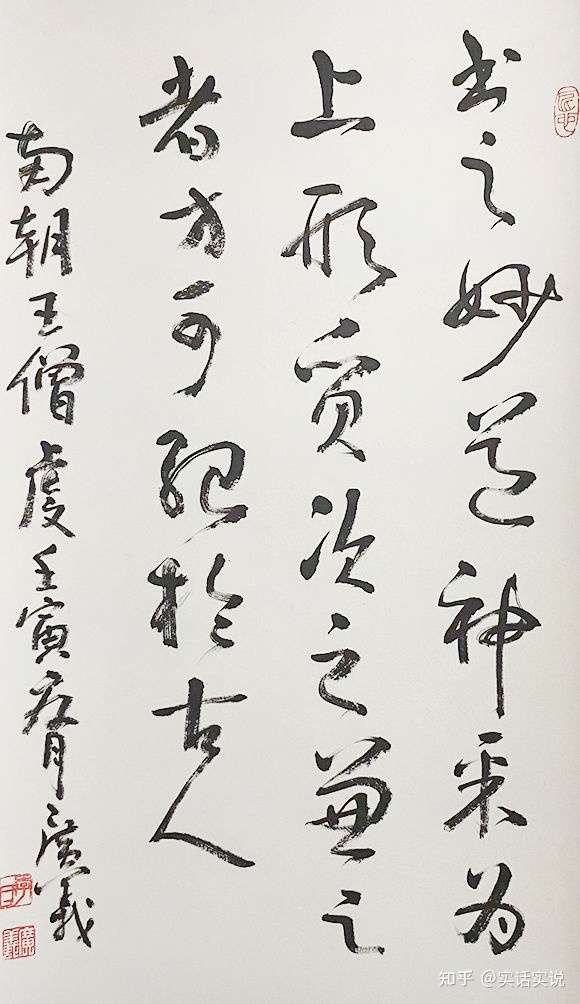 书之妙道神采为
上形质次之兼之
者方可绍於古人
南朝王僧虔壬寅月廣義
知乎 @实话实说